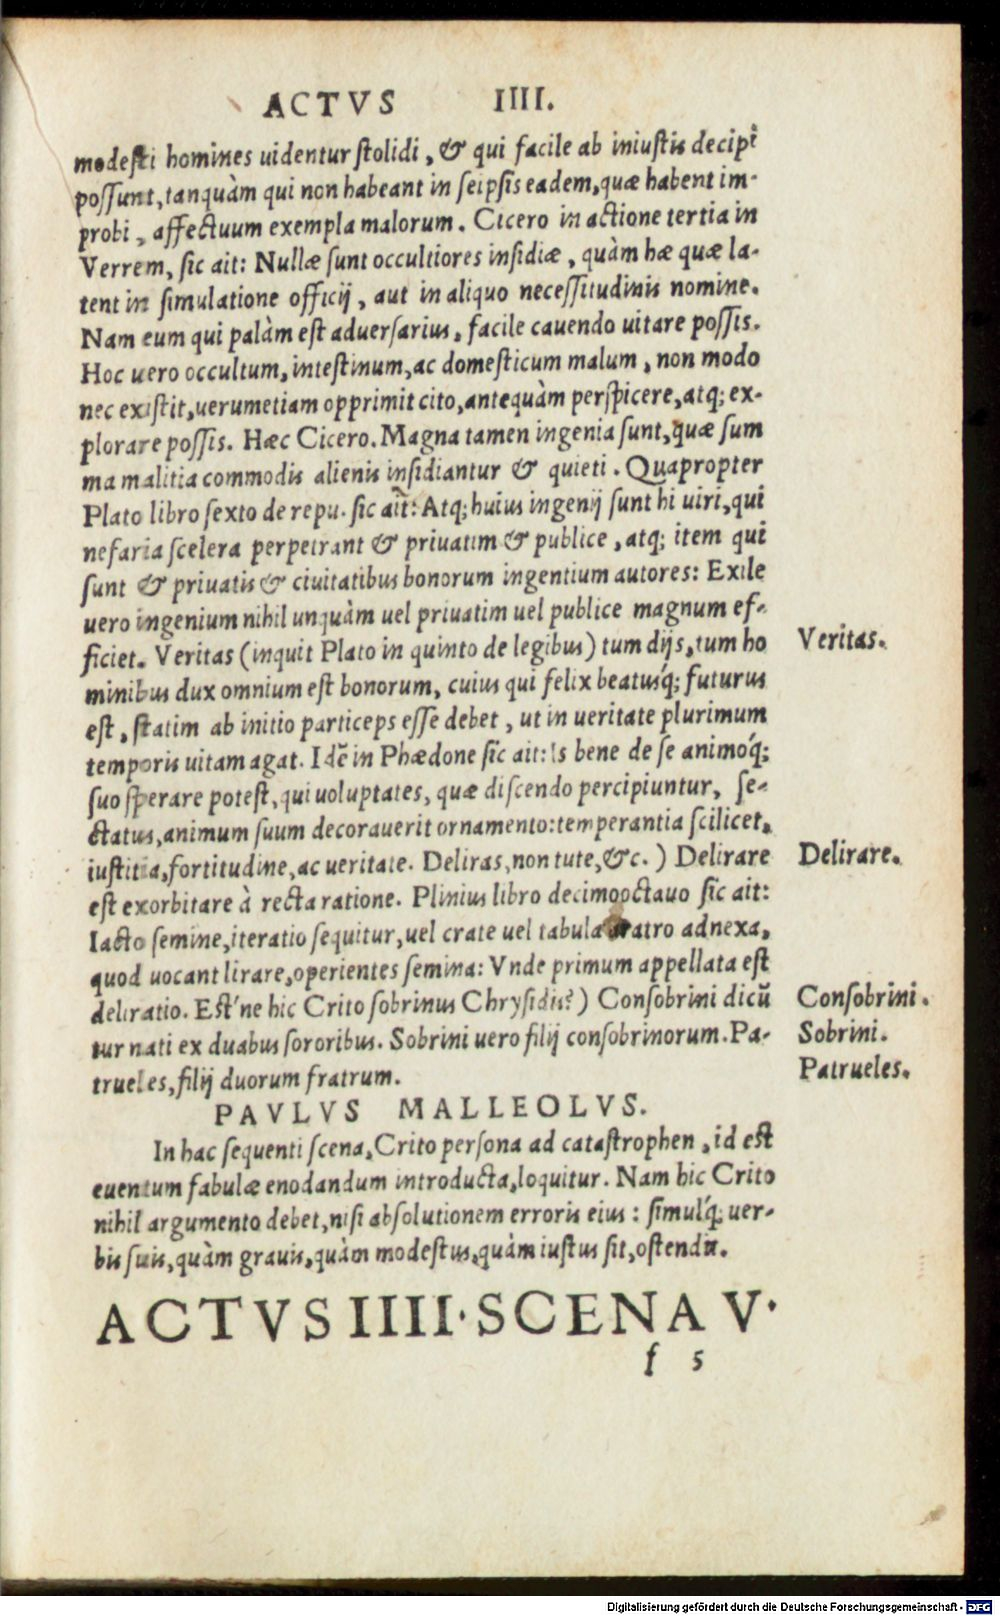 ACTVS IIII.
modesti homines uidentur stolidi, & qui facile ab iniustis decipi
possunt, tanquàm qui non habeant in seipsis eadem, quæ habent im-
probi, affectuum exempla malorum. Cicero in actione tertia in
Verrem, sic ait: Nullæ sunt occultiores insidiæ, quàm hæ quæ la-
tent in simulatione officij, aut in aliquo necessitudinis nomine.
Nam eum qui palàm est aduersarius, facile cauendo uitare possis.
Hoc uero occultum, intestinum, ac domesticum malum, non modo
nec existit, uerumetiam opprimit cito, antequàm perspicere, atq; ex-
plorare possis. Hæc Cicero. Magna tamen ingenia sunt, quæ sum
ma malitia commodis alienis insidiantur & quieti. Quapropter
Plato libro sexto de repu. sic aīt: Atq; huius ingenij sunt hi uiri, qui
nefaria scelera perpetrant & priuatim & publice, atq; item qui
sunt & priuatis & ciuitatibus bonorum ingentium autores: Exile
uero ingenium nihil unquàm uel priuatim uel publice magnum ef-
ficiet. Veritas (inquit Plato in quinto de legibus) tum dijs, tum ho
Veritas.
minibus dux omnium est bonorum, cuius qui felix beatusq́; futurus
est, statim ab initio particeps esse debet, ut in ueritate plurimum
temporis uitam agat. Idē in Phædone sic ait: Is bene de se animoq́;
suo sperare potest, qui uoluptates, quæ discendo percipiuntur, se-
ctatus, animum suum decorauerit ornamento: temperantia scilicet,
iustitia, fortitudine, ac ueritate. Deliras, non tute, &c. ) Delirare
Delirare.
est exorbitare à recta ratione. Plinius libro decimooctauo sic ait:
Iacto semine, iteratio sequitur, uel crate uel tabula aratro adnexa,
quod uocant lirare, operientes semina: Vnde primum appellata est
deliratio. Est'ne hic Crito sobrinus Chrysidis? ) Consobrini dicū
Consobrini.
tur nati ex duabus sororibus. Sobrini uero filij consobrinorum. Pa-
Sobrini.
trueles, filij duorum fratrum.
Patrueles.
PAVLVS MALLEOLVS.
In hac sequenti scena, Crito persona ad catastrophen, id est
euentum fabulæ enodandum introducta, loquitur. Nam hic Crito
nihil argumento debet, nisi absolutionem erroris eius: simulq́; uer-
bis suis, quàm grauis, quàm modestus, quàm iustus sit, ostendit.
ACTVS IIII. SCENA V.
f 5
Digitalisierung gefördert durch die Deutsche Forschungsgemeinschaft - DFG